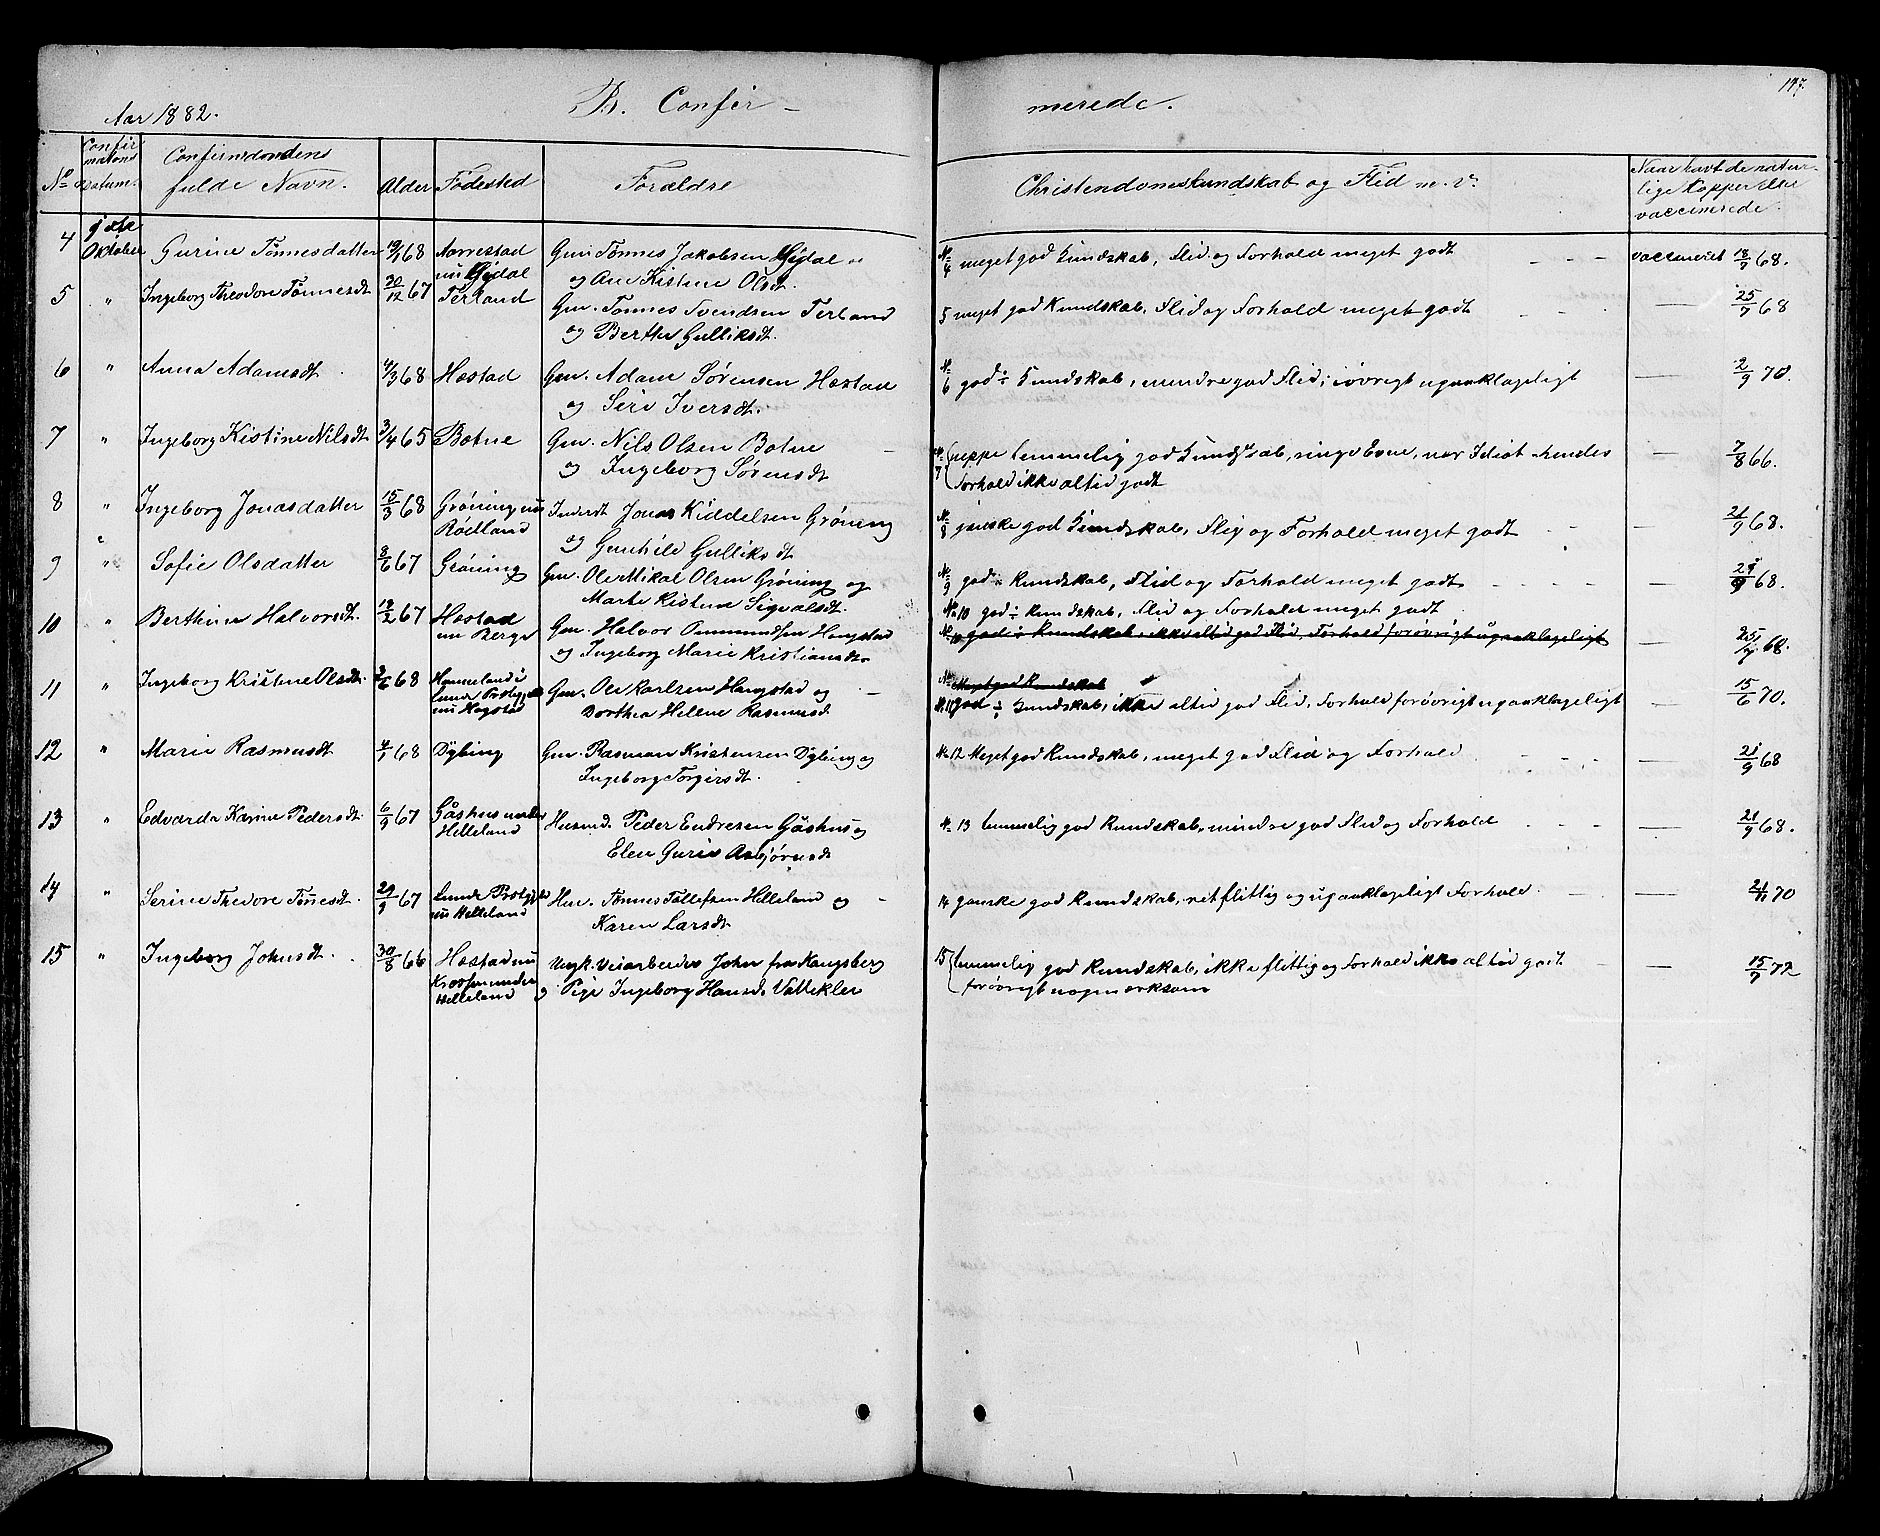 197.
Aar 1882.
B. Confir-
merede.
No
Confirmations Datum.
Confirmandens fulde Navn.
Alder
Fødested
Forældre
Christendomskundskab og Flid m. v.
Naar havt de naturlige Kopper eller vaccinerede.
4 Oktober Gurine Tønnesdatter 68 Aarrestad Gm Tønnes Jakobsen Gydal No 4 meget god Kundskab, Flid og Forhold meget godt - - - vaccineret 68.
nu Gydal og Ane Kistine Olsdt.
5 " Ingeborg Theodore Tønnesdt 20/12 67 Terland Gm. Tønnes Svendsen Terland 5 meget god Kundskab, Flid og Forhold meget godt - - - — 25/7 68
og Berthe Gulliksdt.
6 " Anna Adamsdt. 4/3 68 Hæstad Gm. Adam Sørensen Hæstad No 6 god ÷ Kundskab, mindre god Flid, iøvrigt upaaklageligt — 2/9 70.
og Siri Iversdt.
7 " Ingeborg Kistine Nilsdt 3/4 65 Botne Gm. Nils Olsen Botne - No 7 neppe temmelig god Kundskab, ringe Evne, nær Idiot hendes — 7/8 66.
og Ingeborg Sørensdt Forhold ikke altid godt
8 " Ingeborg Jonasdatter 15/3 68 Grøning nu Inderst Jonas Kiddelsen Grøning No 8 ganske god Kundskab, Flig og Forhold meget godt - - — 21/9 68.
Rødland og Gunhild Gulliksdt
9 " Sofie Olsdatter 8/6 67 Grøning Gm. Ole Mikal Olsen Grøning og No 9 god ÷ Kundskab, Flid og Forhold meget godt - - - - — 68.
Marte Kistine Sigvalsdt.
10 " Berthine Halvorsdt. 67 Hæstad Gm. Halvor Ommundsen Haugstad No 10 god ÷ Kundskab, Flid og Forhold meget godt
nu Berge og Ingeborg Marie Kristiansdt. No 10 god ÷ Kundskab, ikke altid god Flid, Forhold forøvrigt upaaklageligt — 68.
11 " Ingeborg Kristine Olsdt. 68 Hammeland i Gm. Ole Karlsen Haugstad og - No Meget god Kundskab
Lunde Prstgj. nu Hegstad Dorthea Helene Rasmusd. N. 11 god ÷ Kundskab, ikke altid god Flid, Forhold forøvrigt upaaklageligt — 15/6 70.
12 " Marie Rasmusdt. 68 Dybing Gm. Rasmus Kristensen Dybing og N. 12 Meget god Kundskab, meget god Flid og Forhold - - - — 21/9 68
Ingeborg Torgersdt.
13 " Edvarda Karine Pedersdt. 6/9 67 Gåshus under Husmd. Peder Endresen Gåshus og N. 13 temmelig god Kundskab, mindre god Flid og Forhold - - - — 21/9 68.
Helleland Elen Gurie Asbjørnsdt
14 " Serine Thedore Tønesdt. 29/9 67 Lunde Prstgj. Hm. Tønnes Tollefsen Helleland og - 14 ganske god Kundskab, ret flittig og upaaklageligt Forhold. - — 70
nu Helleland Karen Larsdt
15 " Ingeborg Johnsdt. 30/8 66 Hæstad nu Ungk. Veiarbeider John fra Kongsberg 15 temmelig god Kundskab, ikke flittig og Forhold ikke altid godt - — 15/9 72
Krossen under Helleland og Pige Ingeborg Hansd. Vatteklev forøvrigt uopmærksom